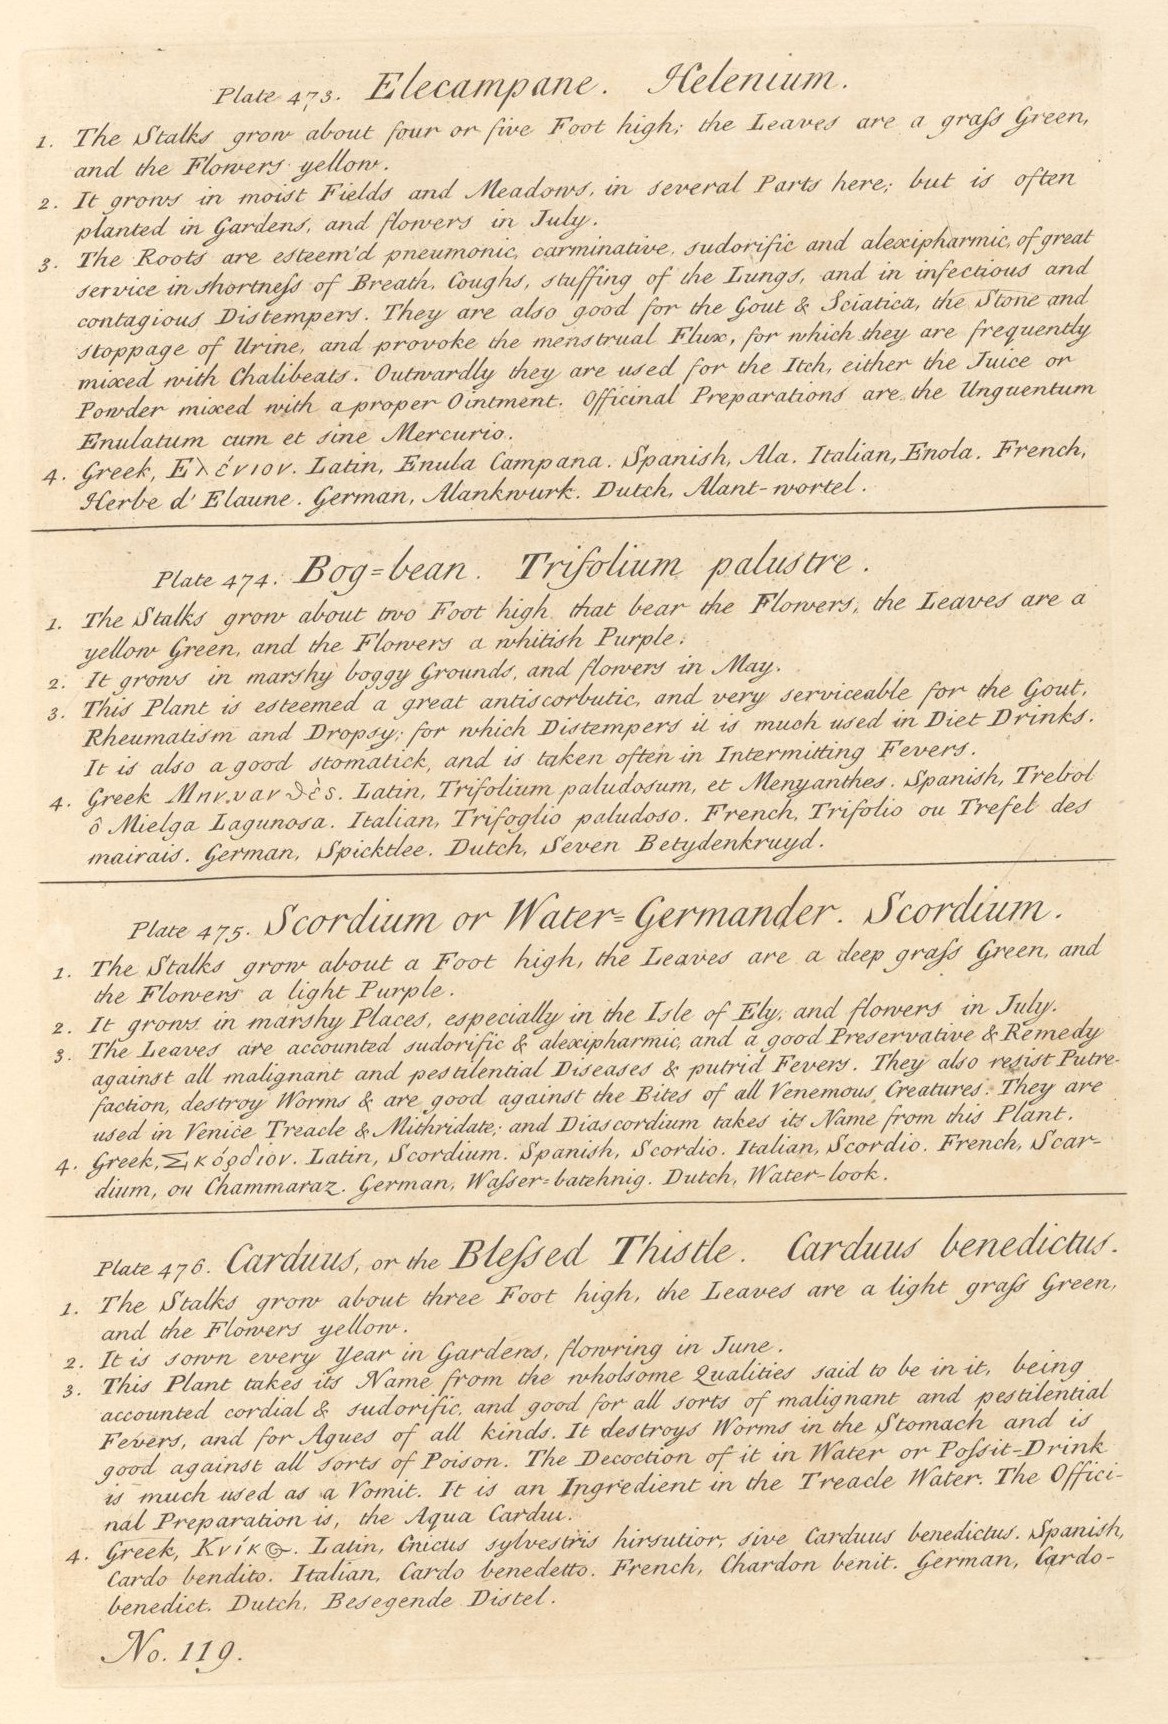 Plate 473. Elecampane. Helenium.
1. The Stalks grow about four or five Foot high; the Leaves are a graſs Green,
and the Flowers yellow.
2. It grows in moist Fields and Meadows, in several Parts here; but is often
planted in Gardens, and flowers in July.
3. The Roots are esteem'd pneumonic, carminative, sudorific and alexipharmic, of great
service in shortneſs of Breath, Coughs, stuffing of the Lungs, and in infectious and
contagious Distempers. They are also good for the Gout & Sciatica, the Stone and
stoppage of Urine, and provoke the menstrual Flux, for which they are frequently
mixed with Chalibeats. Outwardly they are used for the Itch, either the Juice or
Powder mixed with a proper Ointment. Officinal Preparations are the Unguentum
Enulatum cum et sine Mercurio.
4. Greek, Ελένιον. Latin, Enula Campana. Spanish, Ala. Italian, Enola. French,
Herbe d' Elaune. German, Alankwurk. Dutch, Alant-wortel.
Plate 474. Bog=bean. Trifolium palustre.
1. The Stalks grow about two Foot high that bear the Flowers, the Leaves are a
yellow Green, and the Flowers a whitish Purple.
2. It grows in marshy boggy Grounds, and flowers in May.
3. This Plant is esteemed a great antiscorbutic, and very serviceable for the Gout,
Rheumatism and Dropsy; for which Distempers it is much used in Diet Drinks.
It is also a good stomatick, and is taken often in Intermitting Fevers.
4. Greek Μηνυανθὲς. Latin, Trifolium paludosum, et Menyanthes. Spanish, Trebol
ô Mielga Lagunosa. Italian, Trifoglio paludoso. French, Trifolio ou Trefel des
mairais. German, Spicktlee. Dutch, Seven Betydenkruyd.
Plate 475. Scordium or Water=Germander. Scordium.
1. The Stalks grow about a Foot high, the Leaves are a deep graſs Green, and
the Flowers a light Purple.
2. It grows in marshy Places, especially in the Isle of Ely, and flowers in July.
3. The Leaves are accounted sudorific & alexipharmic, and a good Preservative & Remedy
against all malignant and pestilential Diseases & putrid Fevers. They also resist Putre-
faction, destroy Worms & are good against the Bites of all Venemous Creatures. They are
used in Venice Treacle & Mithridate; and Diascordium takes its Name from this Plant.
4. Greek, Σκόρδιον. Latin, Scordium. Spanish, Scordio. Italian, Scordio. French, Scar-
dium, ou Chammaraz. German, Waſser=batehnig. Dutch, Water-look.
Plate 476. Carduus, or the Bleſsed Thistle. Carduus benedictus.
1. The Stalks grow about three Foot high, the Leaves are a light graſs Green,
and the Flowers yellow.
2. It is sown every Year in Gardens, flowring in June.
3. This Plant takes its Name from the wholsome Qualities said to be in it, being
accounted cordial & sudorific, and good for all sorts of malignant and pestilential
Fevers, and for Agues of all kinds. It destroys Worms in the Stomach and is
good against all sorts of Poison. The Decoction of it in Water or Poſsit-Drink
is much used as a Vomit. It is an Ingredient in the Treacle Water. The Offici-
nal Preparation is, the Aqua Cardui.
4. Greek, Κνίκος. Latin, Cnicus sylvestris hirsutior, sive Carduus benedictus. Spanish,
Cardo bendito. Italian, Cardo benedetto. French, Chardon benit. German, Cardo-
benedict. Dutch, Besegende Distel.
No. 119.